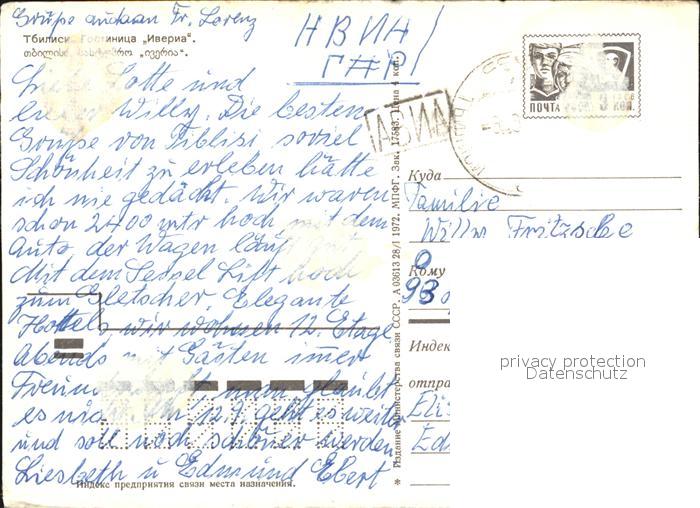 Grüße auch an Fr. Lorenz
Тбилиси. Гостиница „Иверия“.
თბილისი. სასტუმრო „ივერია“.
АВИА
ГДР
Liebe Lotte und
lieber Willy. Die besten
Grüße von Tiblisi soviel
Schönheit zu erleben hätte
ich nie gedacht. Wir waren
schon 2400 mtr hoch mit dem
Auto der Wagen läuft gut
Mit dem Sessel Lift hoch
zum Gletscher, Elegante
Hottels wir wohnen 12. Etage
Abends mit Gästen imer
man glaubt
es nicht. Am 12.9. geht es weiter
und soll noch schöner werden
Liesbeth u Edmund Ebert
Индекс предприятия связи места назначения.
* Издание Министерства связи СССР. А 03613 28/I 1972. МПФГ. Зак. 17583. Цена 4 коп.
АВИА
ПОЧТА
КОП.
Куда
Familie
Willy Fritzsche
Кому
Индекс
отпра
privacy protection
Datenschutz